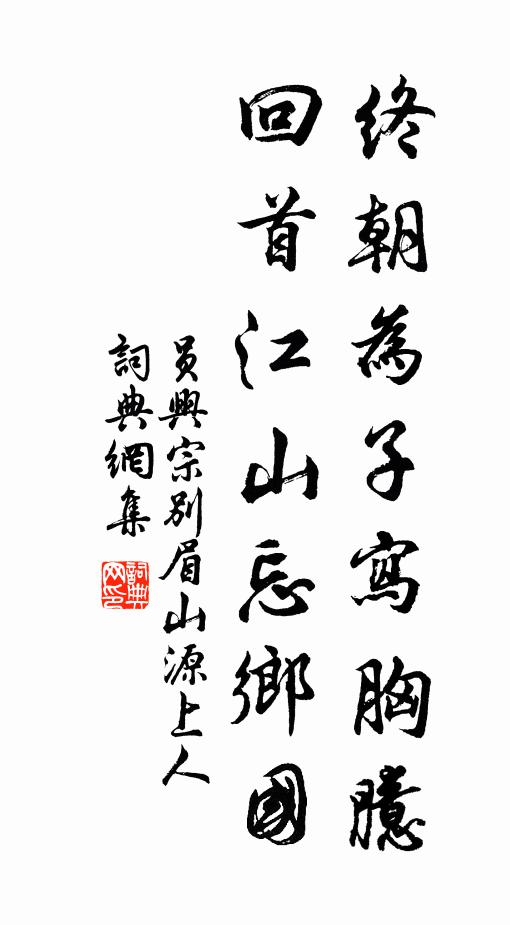 終朝為子寫胸臆
回首江山忘鄉國
員興宗別眉山源上人
詞典網集
詞典网印